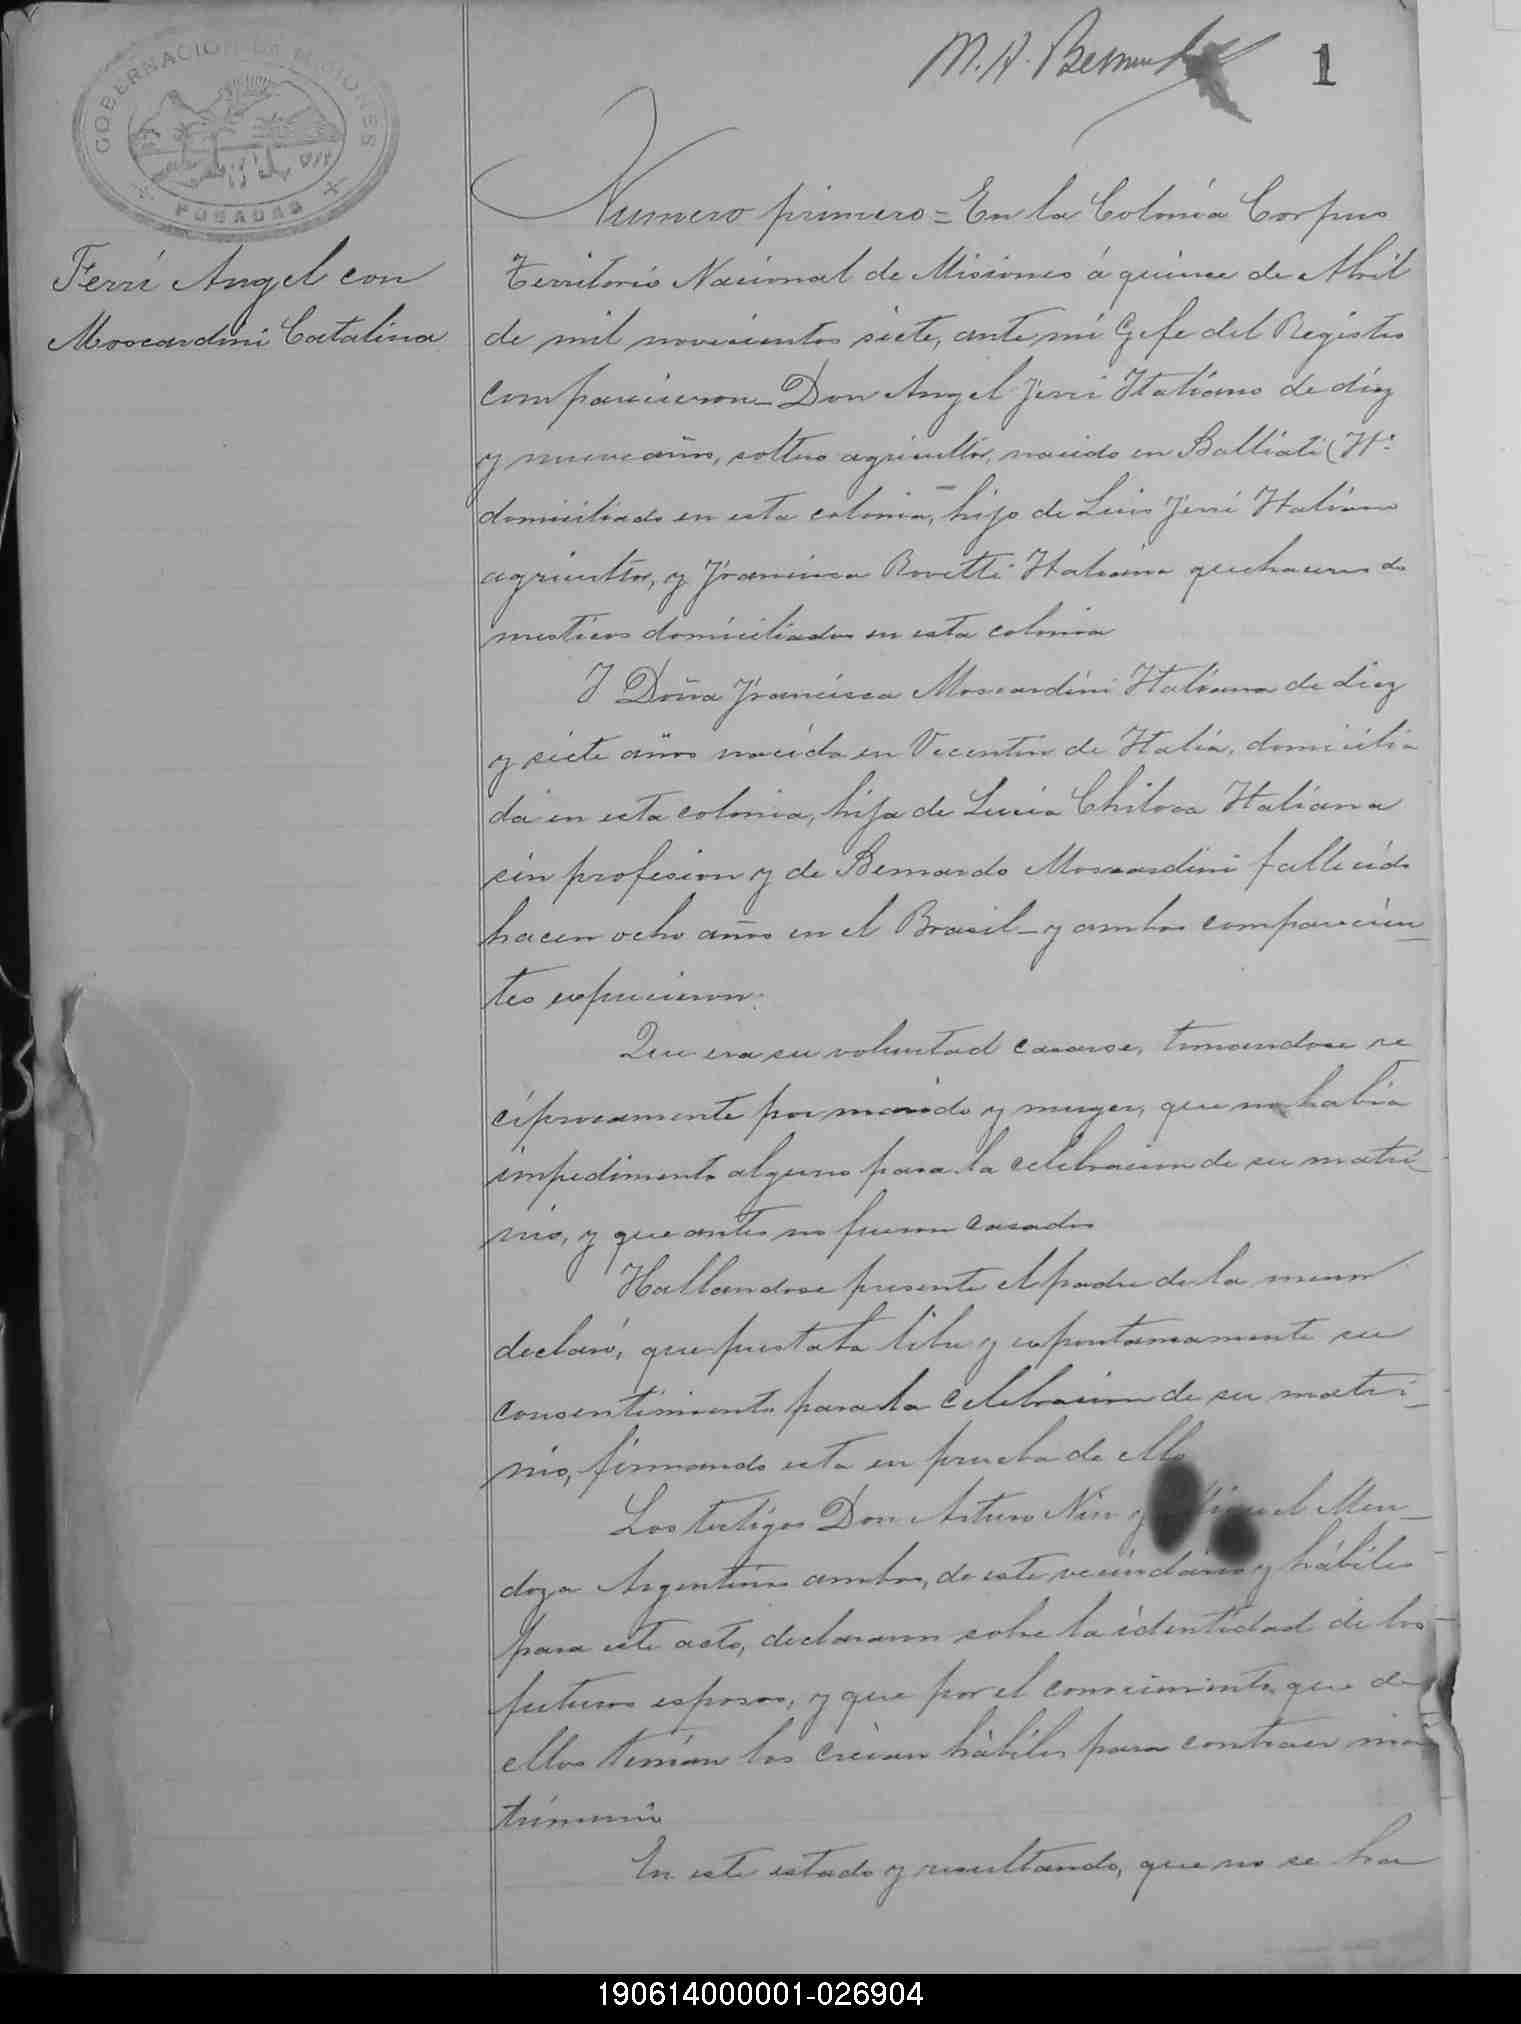 GOBERNACION DE MISIONES
POSADAS
M. A. 
1
Ferri Angel con
Moscardini Catalina
Numero primero = En la Colonia Corpus
Territorio Nacional de Misiones á quince de Abril
de mil novecientos siete, ante mi Gefe del Registro
comparecieron Don Angel Ferri Italiano de diez
y nueve años, soltero agricultor, nacido en (It.
domiciliado en esta colonia, hijo de Luis Ferri Italiano
agricultor, y Francisca Rovetti Italiana quehaceres do
mesticos domiciliados en esta colonia
Y Doña Francisca Moscardini Italiana de diez
y siete años nacida en Vicentin de Italia, domicilia
da en esta colonia, hija de Lucia Chilosa Italiana
sin profesion y de Bernardo Moscardini fallecido
hacen ocho años en el Brasil_ y ambos comparecien_
tes expusieron:
Que era su voluntad casarse, tomandose re
ciprocamente por marido y muger, que no habia
impedimento alguno para la celebracion de su matri_
nio, y que antes no fueron casados
Hallandose presente el padre de la menor
declaró, que prestaba libre y espontaneamente su
consentimiento para la celebracion de su matri_
nio, firmando esta en prueba de ello
Los testigos Don Arturo Nin y Miguel Men_
doza Argentinos ambos, de este vecindario y hábiles
para este acto, declararon sobre la identidad de los
futuros esposos, y que por el conocimiento que de
ellos tenian los creian hábiles para contraer ma
trimonio
En este estado y resultando, que no se ha
190614000001-026904